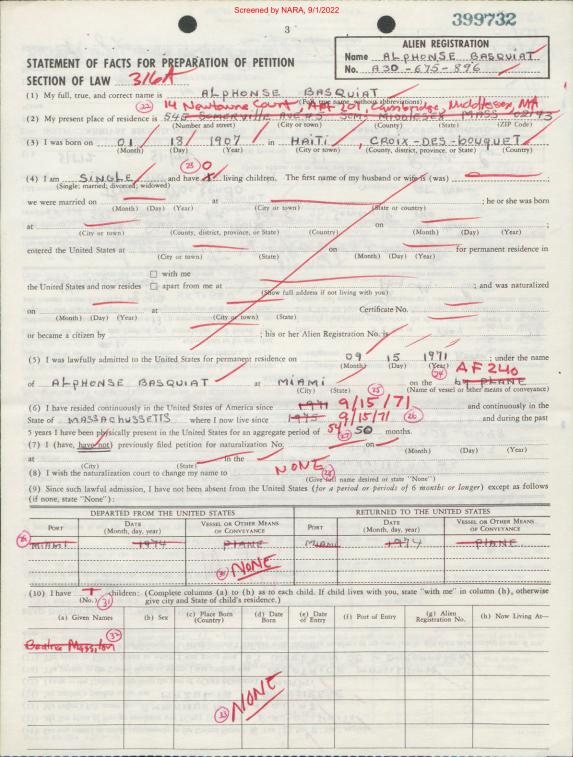 Screened by NARA, 9/1/2022
399732
3
ALIEN REGISTRATION
Name ALPHONSE BASQUIAT
No. A30-675-896
STATEMENT OF FACTS FOR PREPARATION OF PETITION
SECTION OF LAW 316A
(1) My full, true, and correct name is ALPHONSE BASQUIAT
(Full, true name, without abbreviations)
(22) 14 Newtowne Court, APT 201, Cambridge, Middlesex, MA
(2) My present place of residence is 545 SOMERVILLE AVE #5 SOM. MIDDLESEX MASS 02143
(Number and street) (City or town) (County) (State) (ZIP Code)
(3) I was born on 01 18 1907 in HAITI, CROIX-DES-BOUQUET
(Month) (Day) (Year) (City or town) (County, district, province, or State) (Country)
(23) 0
(4) I am SINGLE and have 1 living children. The first name of my husband or wife is (was) ;
(Single; married; divorced; widowed)
we were married on at ; he or she was born
(Month) (Day) (Year) (City or town) (State or country)
at on ;
(City or town) (County, district, province, or State) (Country) (Month) (Day) (Year)
entered the United States at on for permanent residence in
(City or town) (State) (Month) (Day) (Year)
☐ with me
the United States and now resides ☐ apart from me at ; and was naturalized
(Show full address if not living with you)
on at Certificate No.
(Month) (Day) (Year) (City or town) (State)
or became a citizen by ; his or her Alien Registration No. is
(5) I was lawfully admitted to the United States for permanent residence on 09 15 1971 ; under the name
(Month) (Day) (Year)
(24) AF 240
of ALPHONSE BASQUIAT at MIAMI on the by PLANE
(City) (State) (Name of vessel or other means of conveyance)
(25)
(6) I have resided continuously in the United States of America since 1971 9/15/71 and continuously in the
State of MASSACHUSSETTS where I now live since 1975 9/15/71 (26) and during the past
5 years I have been physically present in the United States for an aggregate period of 54 50 months.
(27)
(7) I (have, have not) previously filed petition for naturalization No. on
(Month) (Day) (Year)
at in the
(City) (State)
(8) I wish the naturalization court to change my name to NONE (28)
(Give full name desired or state "None")
(9) Since such lawful admission, I have not been absent from the United States (for a period or periods of 6 months or longer) except as follows
(if none, state "None"):
DEPARTED FROM THE UNITED STATES RETURNED TO THE UNITED STATES
PORT DATE (Month, day, year) VESSEL OR OTHER MEANS OF CONVEYANCE PORT DATE (Month, day, year) VESSEL OR OTHER MEANS OF CONVEYANCE
MIAMI 1974 PLANE MIAMI 1974 PLANE
NONE
(10) I have 1 children: (Complete columns (a) to (h) as to each child. If child lives with you, state "with me" in column (h), otherwise
(No.) (31) give city and State of child's residence.)
(a) Given Names (b) Sex (c) Place Born (Country) (d) Date Born (e) Date of Entry (f) Port of Entry (g) Alien Registration No. (h) Now Living At—
(32)
(33) NONE